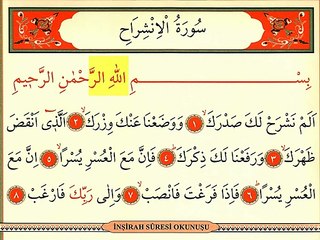 سُورَةُ الْاِنْشِرَاحِ
بِسْــــــــــمِ اللّٰهِ الرَّحْمٰنِ الرَّحِيمِ
اَلَمْ نَشْرَحْ لَكَ صَدْرَكَۙ ١ وَوَضَعْنَا عَنْكَ وِزْرَكَۙ ٢ اَلَّذ۪ٓي اَنْقَضَ
ظَهْرَكَۙ ٣ وَرَفَعْنَا لَكَ ذِكْرَكَۜ ٤ فَاِنَّ مَعَ الْعُسْرِ يُسْرًاۙ ٥ اِنَّ مَعَ
الْعُسْرِ يُسْرًاۜ ٦ فَاِذَا فَرَغْتَ فَانْصَبْۙ ٧ وَاِلٰى رَبِّكَ فَارْغَبْ ٨
İNŞİRAH SÛRESİ OKUNUŞU